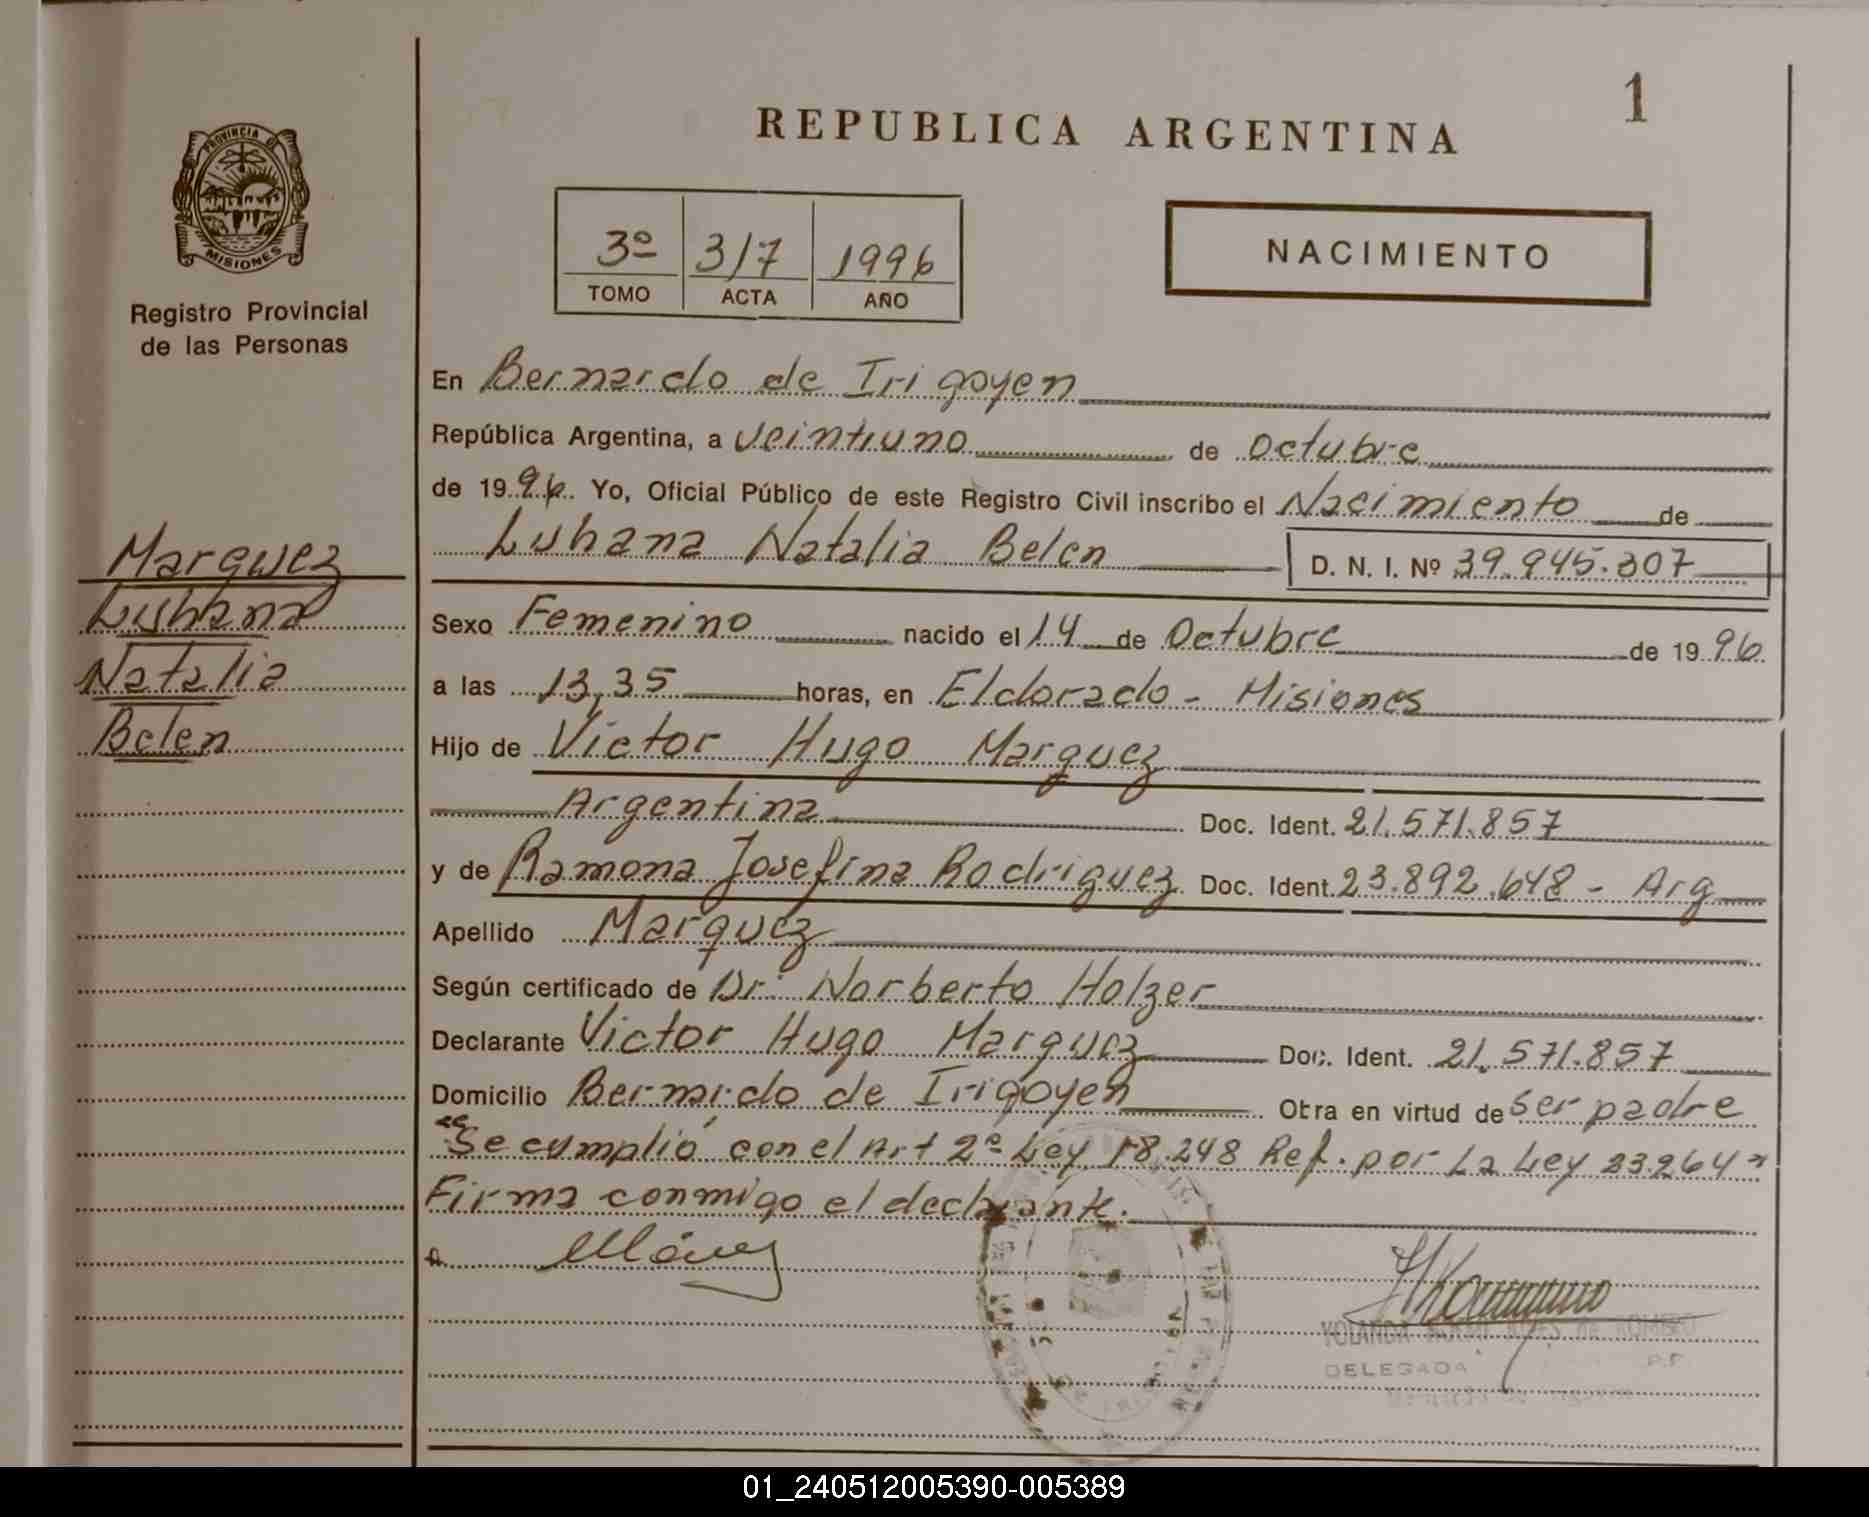 1
REPUBLICA ARGENTINA
PROVINCIA DE
MISIONES
Registro Provincial
de las Personas
3º 317 1996
TOMO ACTA AÑO
NACIMIENTO
En Bernardo de Irigoyen
República Argentina, a veintiuno de Octubre
de 1996. Yo, Oficial Público de este Registro Civil inscribo el Nacimiento de
Luhana Natalia Belen D. N. I. Nº 39.945.307
Marquez
Luhana
Natalia
Belen
Sexo Femenino nacido el 14 de Octubre de 1996
a las 13,35 horas, en Eldorado - Misiones
Hijo de Victor Hugo Marquez
Argentina Doc. Ident. 21.571.857
y de Ramona Josefina Rodriguez Doc. Ident. 23.892.648 - Arg
Apellido Marquez
Según certificado de Dr. Norberto Holzer
Declarante Victor Hugo Marquez Doc. Ident. 21.571.857
Domicilio Bernardo de Irigoyen Otra en virtud de ser padre
"Se cumplió con el Art 2º Ley 18.248 Ref. por La Ley 23.264"
Firma conmigo el declarante.
YOLANDA
DELEGADA
01_240512005390-005389